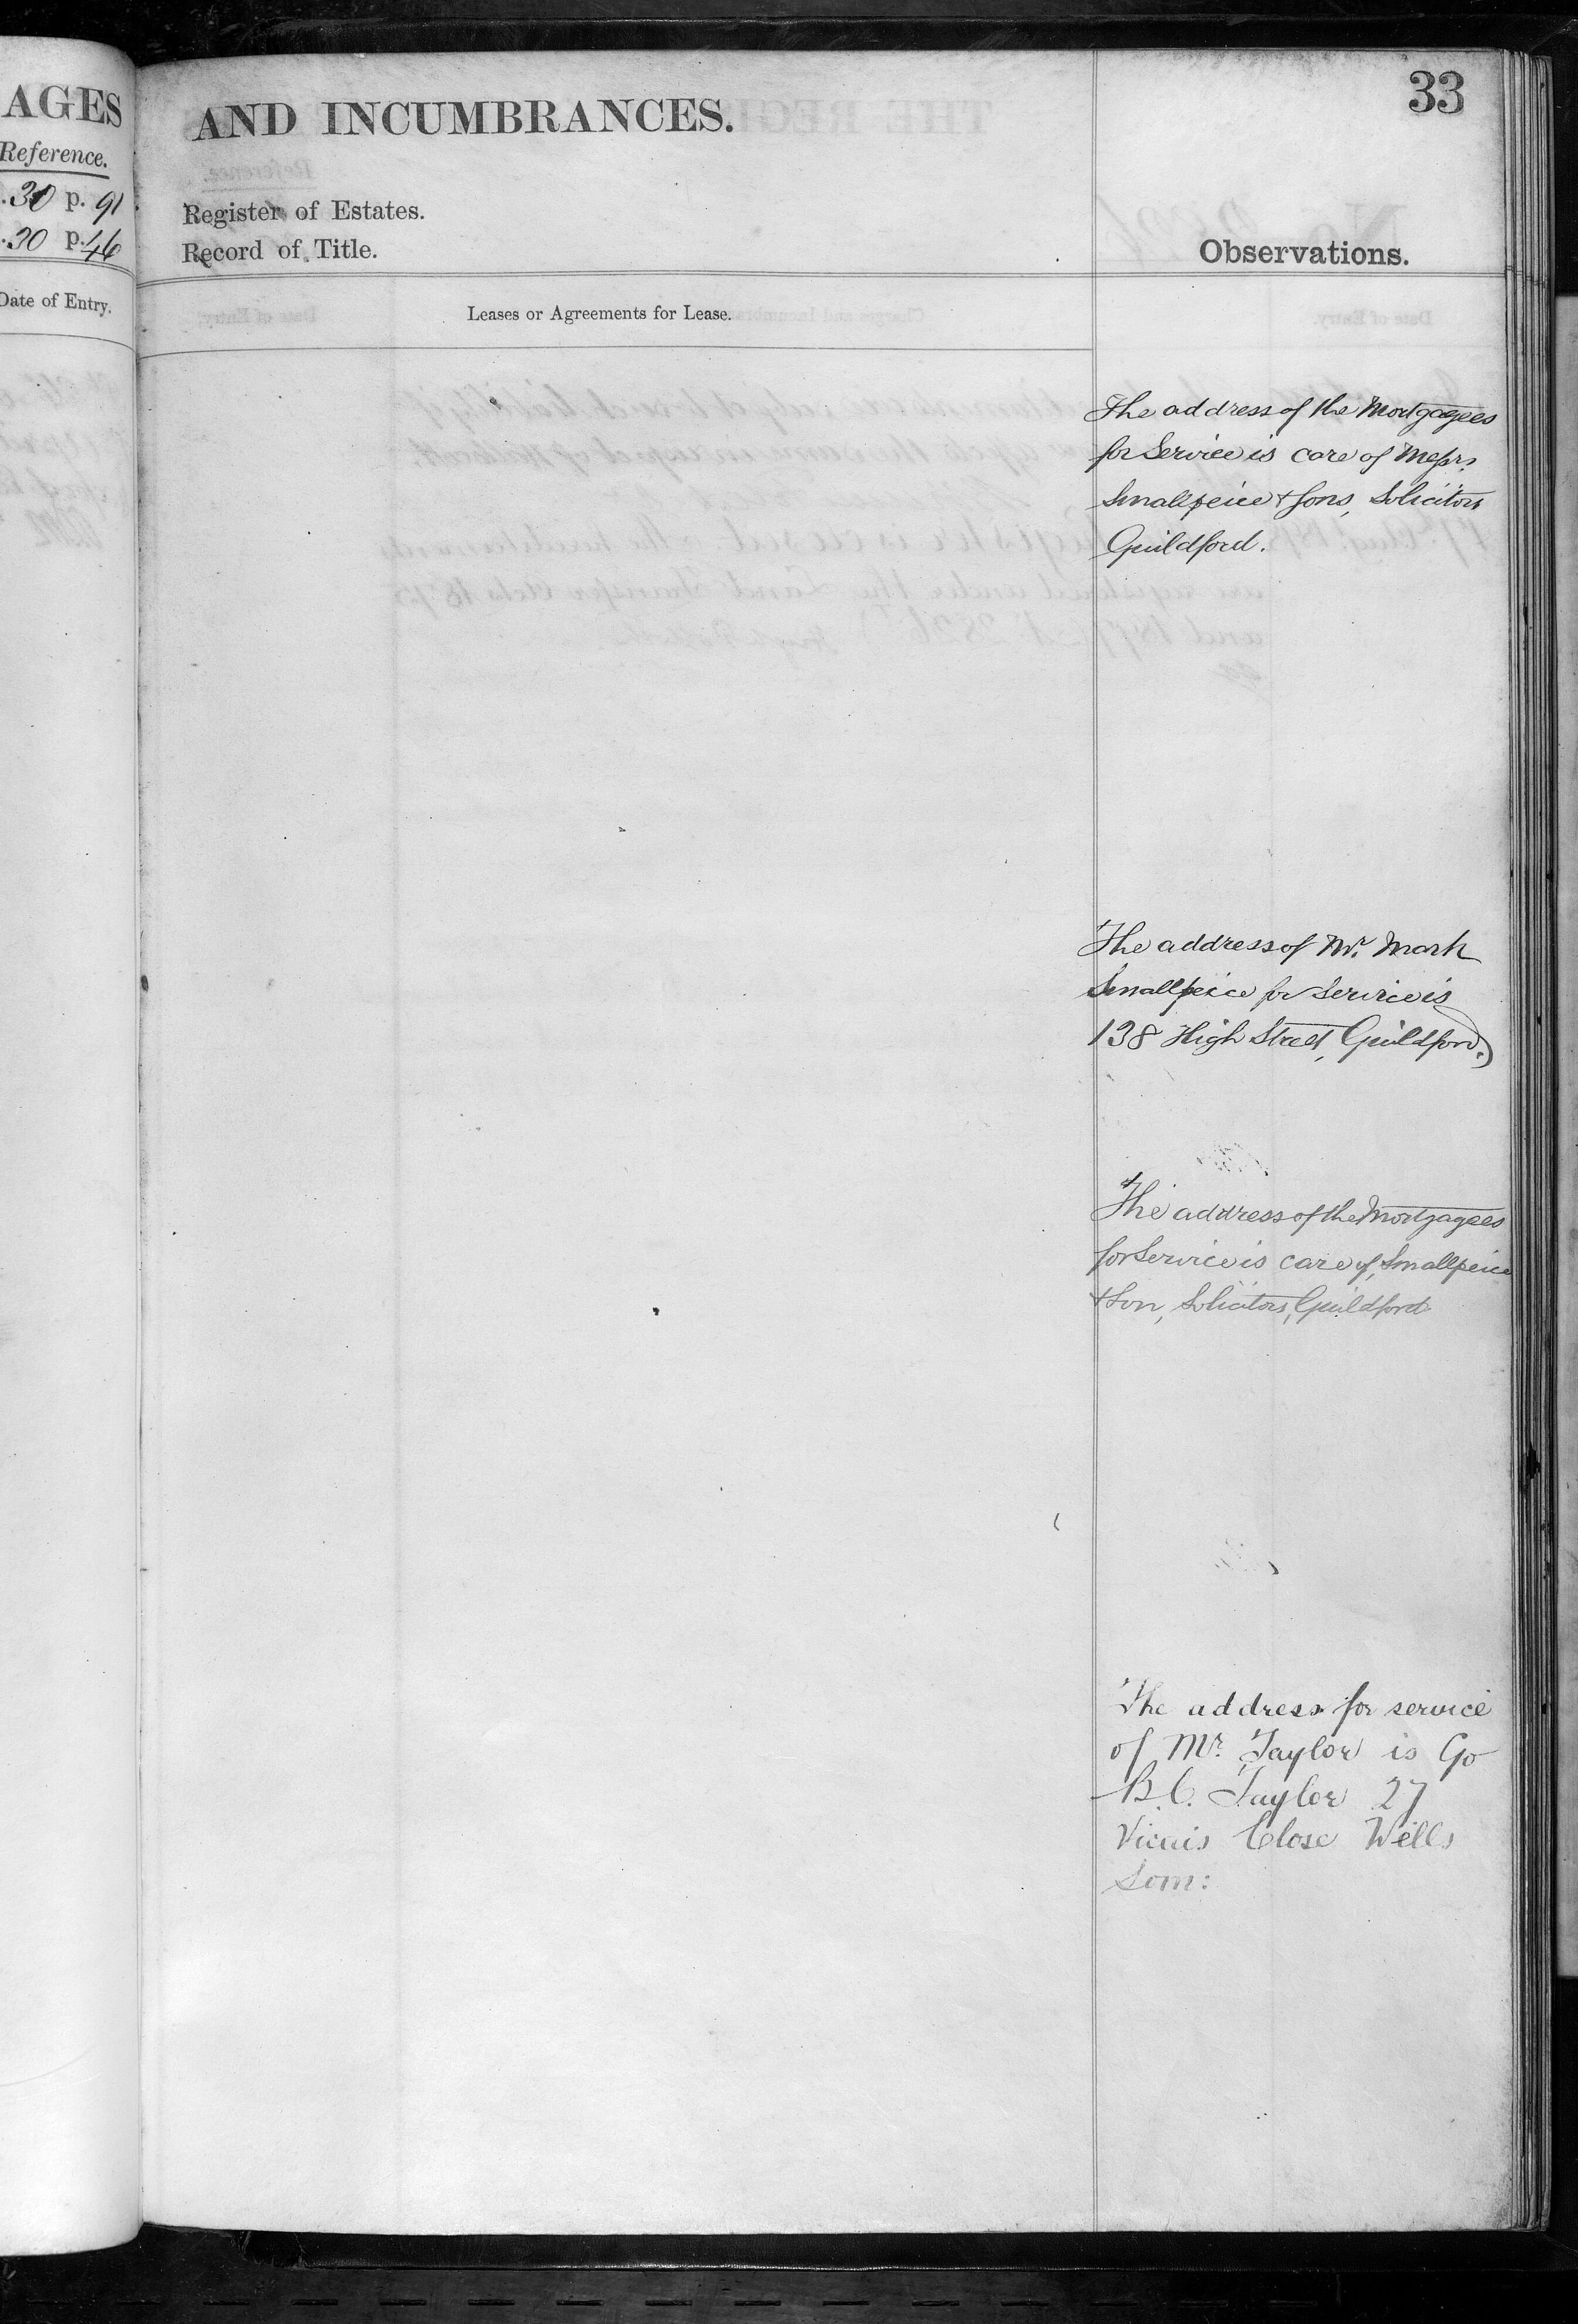 AGES
Reference.
.30 p. 91
.30 p. 46
Date of Entry.
AND INCUMBRANCES.
33
Register of Estates.
Record of Title.
Observations.
Leases or Agreements for Lease.
The address of the Mortgagees
for Service is care of Messrs.
Smallpeice & Sons, Solicitors
Guildford.
The address of Mr. Mark
Smallpeice for Service is
138 High Street, Guildford.
The address of the Mortgagees
for Service is care of, Smallpeice
& Son, Solicitors, Guildford
The address for service
of Mr. Taylor is C/o
B.C. Taylor 27
Vicars Close Wells
Som: